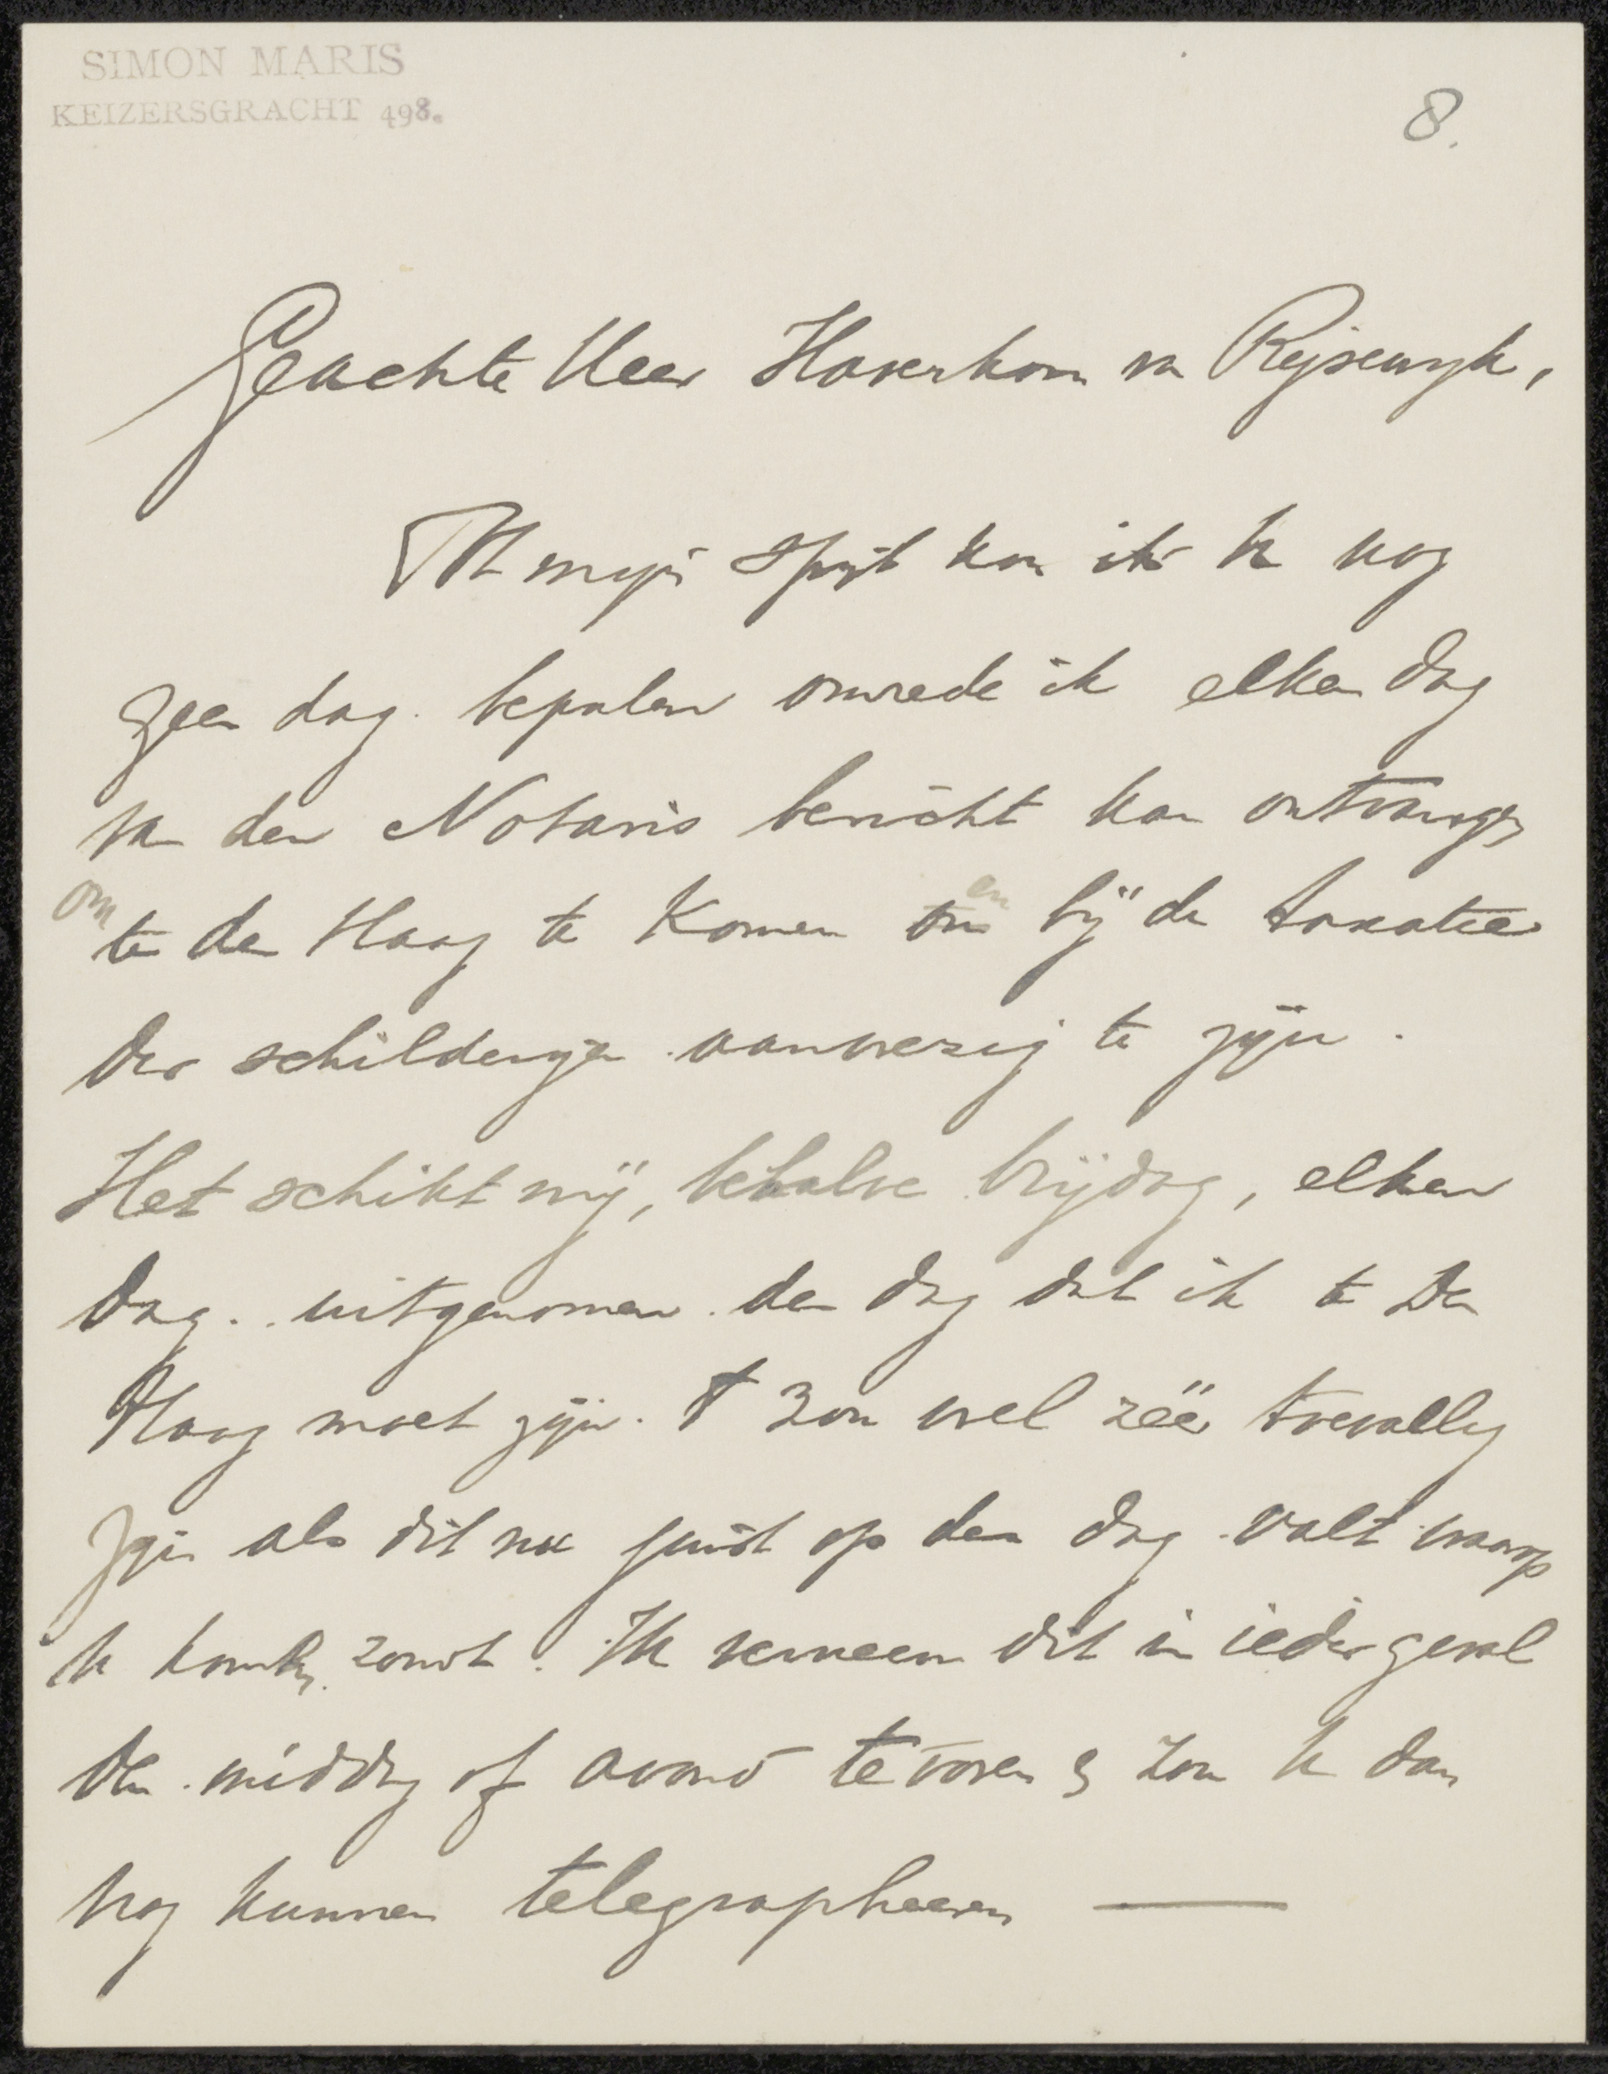 SIMON MARIS
KEIZERSGRACHT 498.
8.
Geachte Heer Haverkorn v Rijsewijk,
Tot mijn spijt kan ik U nog
geen dag bepalen omrede ik elken dag
van den Notaris bericht kan ontvangen
om te den Haag te komen en bij de taxatie
der schilderijen aanwezig te zijn.
Het schikt mij, behalve Vrijdag, elken
dag.. uitgenomen den dag dat ik te Den
Haag moet zijn. 't Zou wel zéér toevallig
zijn als dit nu juist op den dag valt waarop
U komt. Ik verneem dit in ieder geval
den middag of avond tevoren & zou U dan
nog kunnen telegrapheeren —